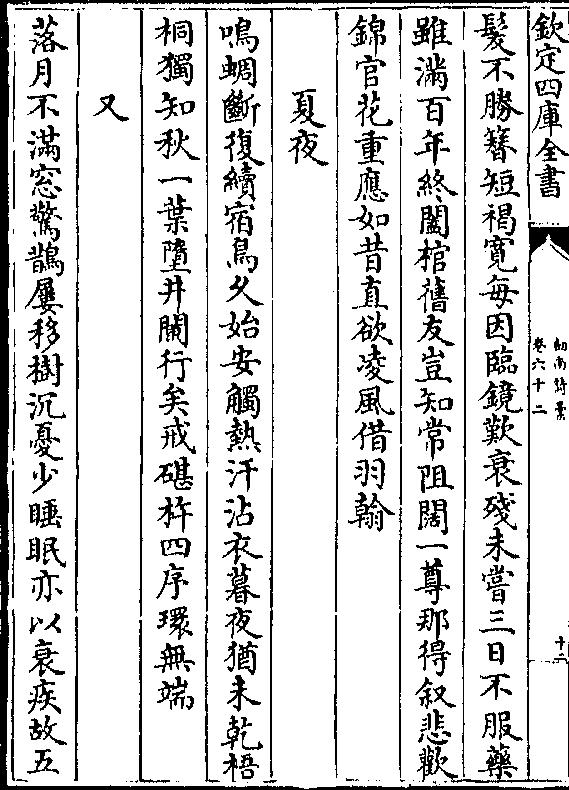 欽定四庫全書
劍南詩藁
卷六十二
十二
髮不勝簪短褐寛每因臨鏡歎衰殘未嘗三日不服藥
雖滿百年終闔棺舊友豈知常阻闊一尊那得叙悲歡
錦官花重應如昔直欲凌風借羽翰
夏夜
鳴蜩斷復續宿鳥久始安觸熱汗沾衣暮夜猶未乾梧
桐獨知秋一葉墮井闌行矣戒碪杵四序環無端
又
落月不滿窓驚鵲屢移樹沉憂少睡眠亦以衰疾故五